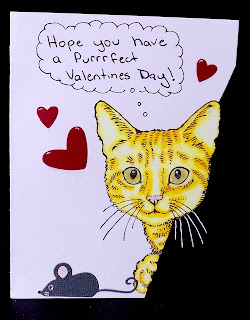 Hope you have
a Purrrfect
Valentines Day!